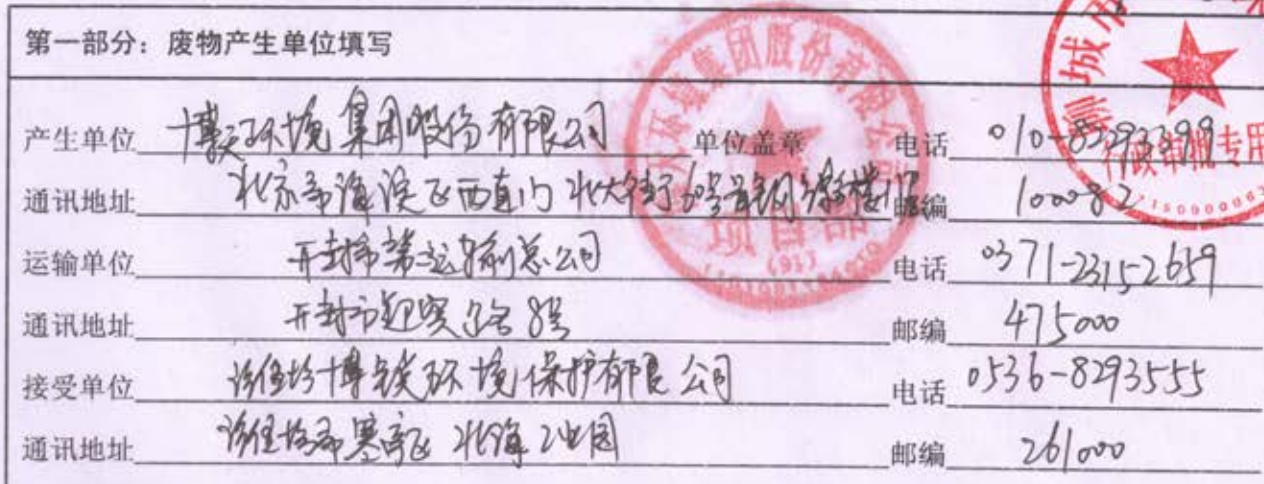 第一部分：废物产生单位填写
产生单位 博天环境集团股份有限公司 单位盖章 电话 010-82293399
通讯地址 北京市海淀区西直门北大街60号首钢综合楼 邮编 100082
运输单位 开封市第 运输总公司 电话 0371-23152659
通讯地址 开封市迎宾路8号 邮编 475000
接受单位 潍坊博锐环境保护有限公司 电话 0536-8293555
通讯地址 潍坊市寒亭区北海工业园 邮编 261000
环境集团股份有限公司
项目
(91)
城市
行政审批专用